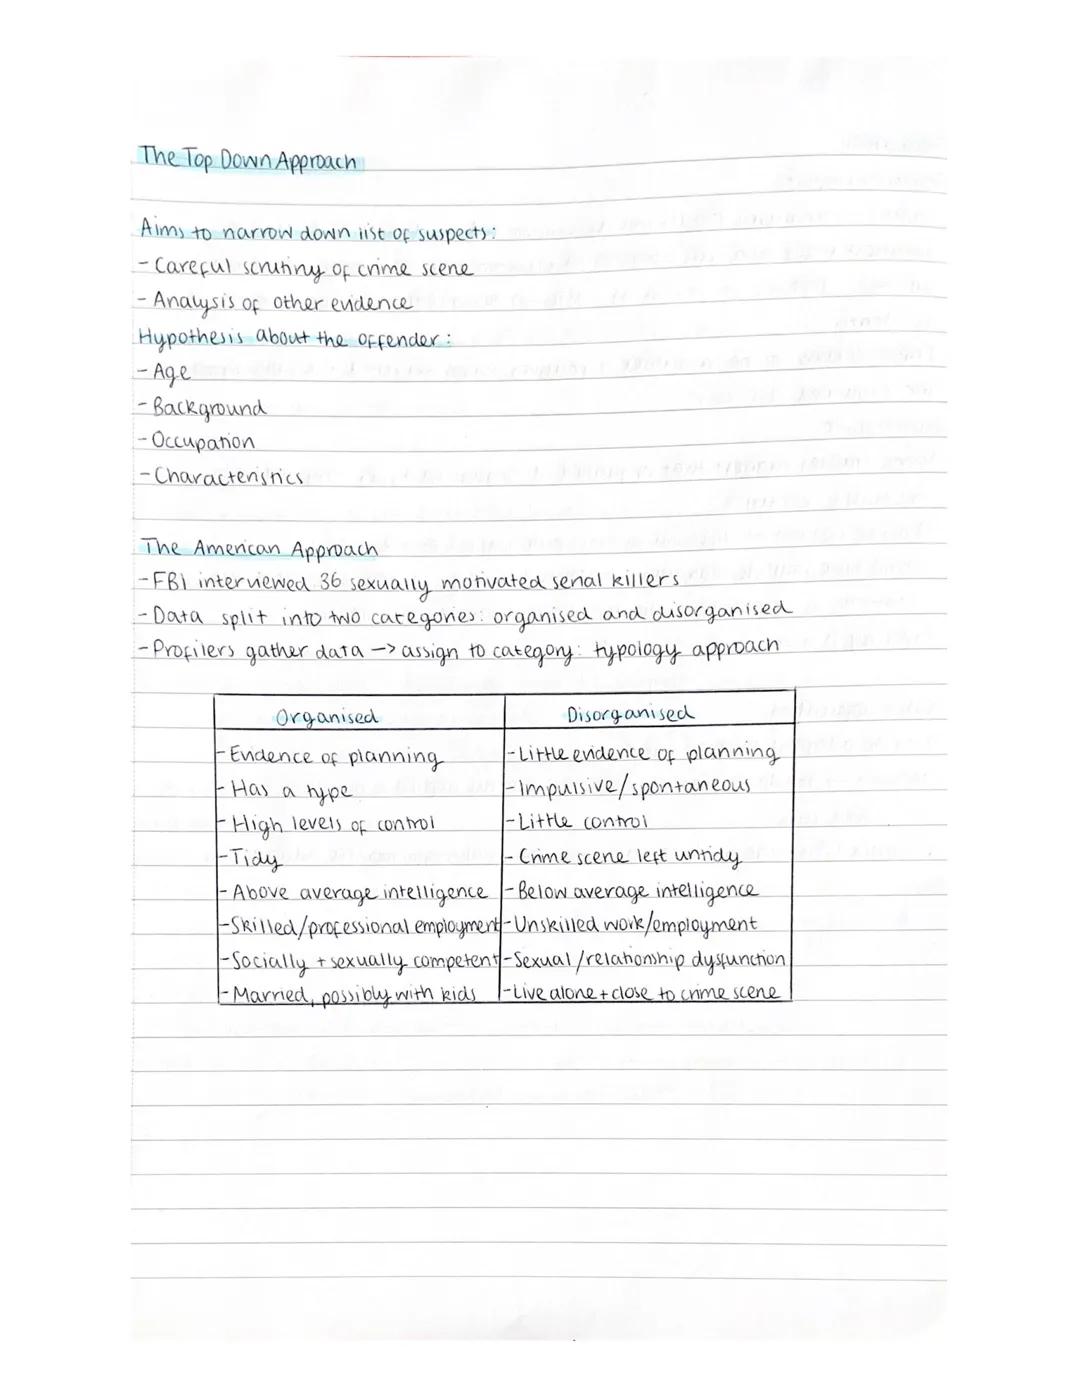 The Top Down Approach
Aims to narrow down list of suspects:
- Careful scrutiny of crime scene
- Analysis of other evidence
Hypothesis about the offender:
- Age
- Background
- Occupation
- Characteristics
The American Approach
- FBI interviewed 36 sexually motivated serial killers
- Data split into two categories: organised and disorganised
- Profilers gather data -> assign to category: typology approach
Organised Disorganised
- Evidence of planning - Little evidence of planning
- Has a type - Impulsive/spontaneous
- High levels of control - Little control
- Tidy - Crime scene left untidy
- Above average intelligence - Below average intelligence
- Skilled/professional employment - Unskilled work/employment
- Socially + sexually competent - Sexual/relationship dysfunction
- Married, possibly with kids - Live alone + close to crime scene